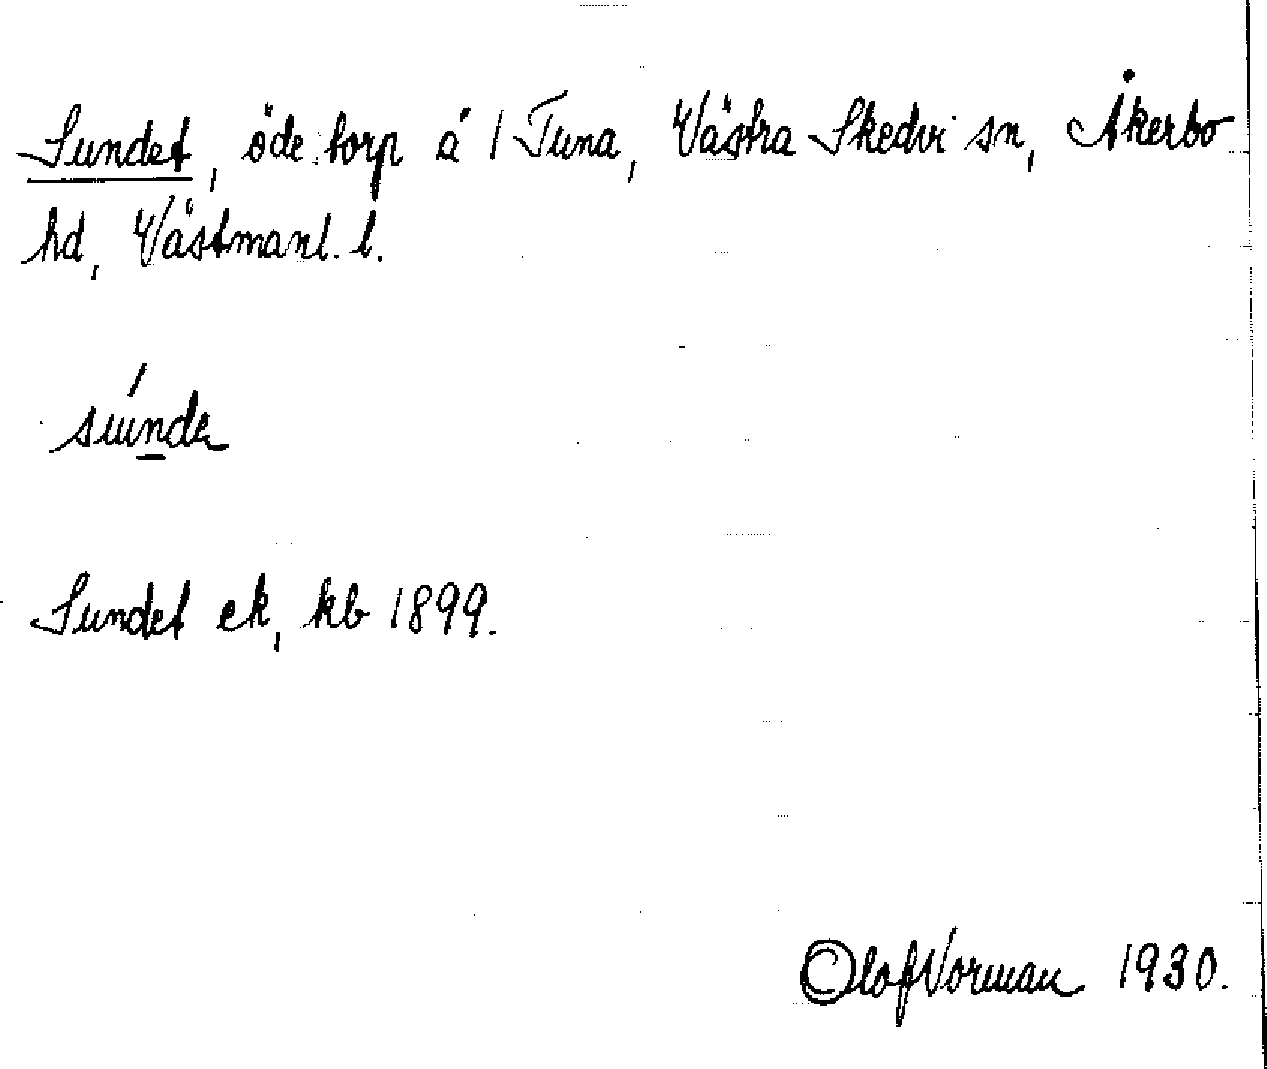 Sundet, öde torp å 1 Tuna, Västra Skedvi sn, Åkerbo
hd, Västmanl. l.
Sundet ek, kb 1899.
Olof Norman 1930.